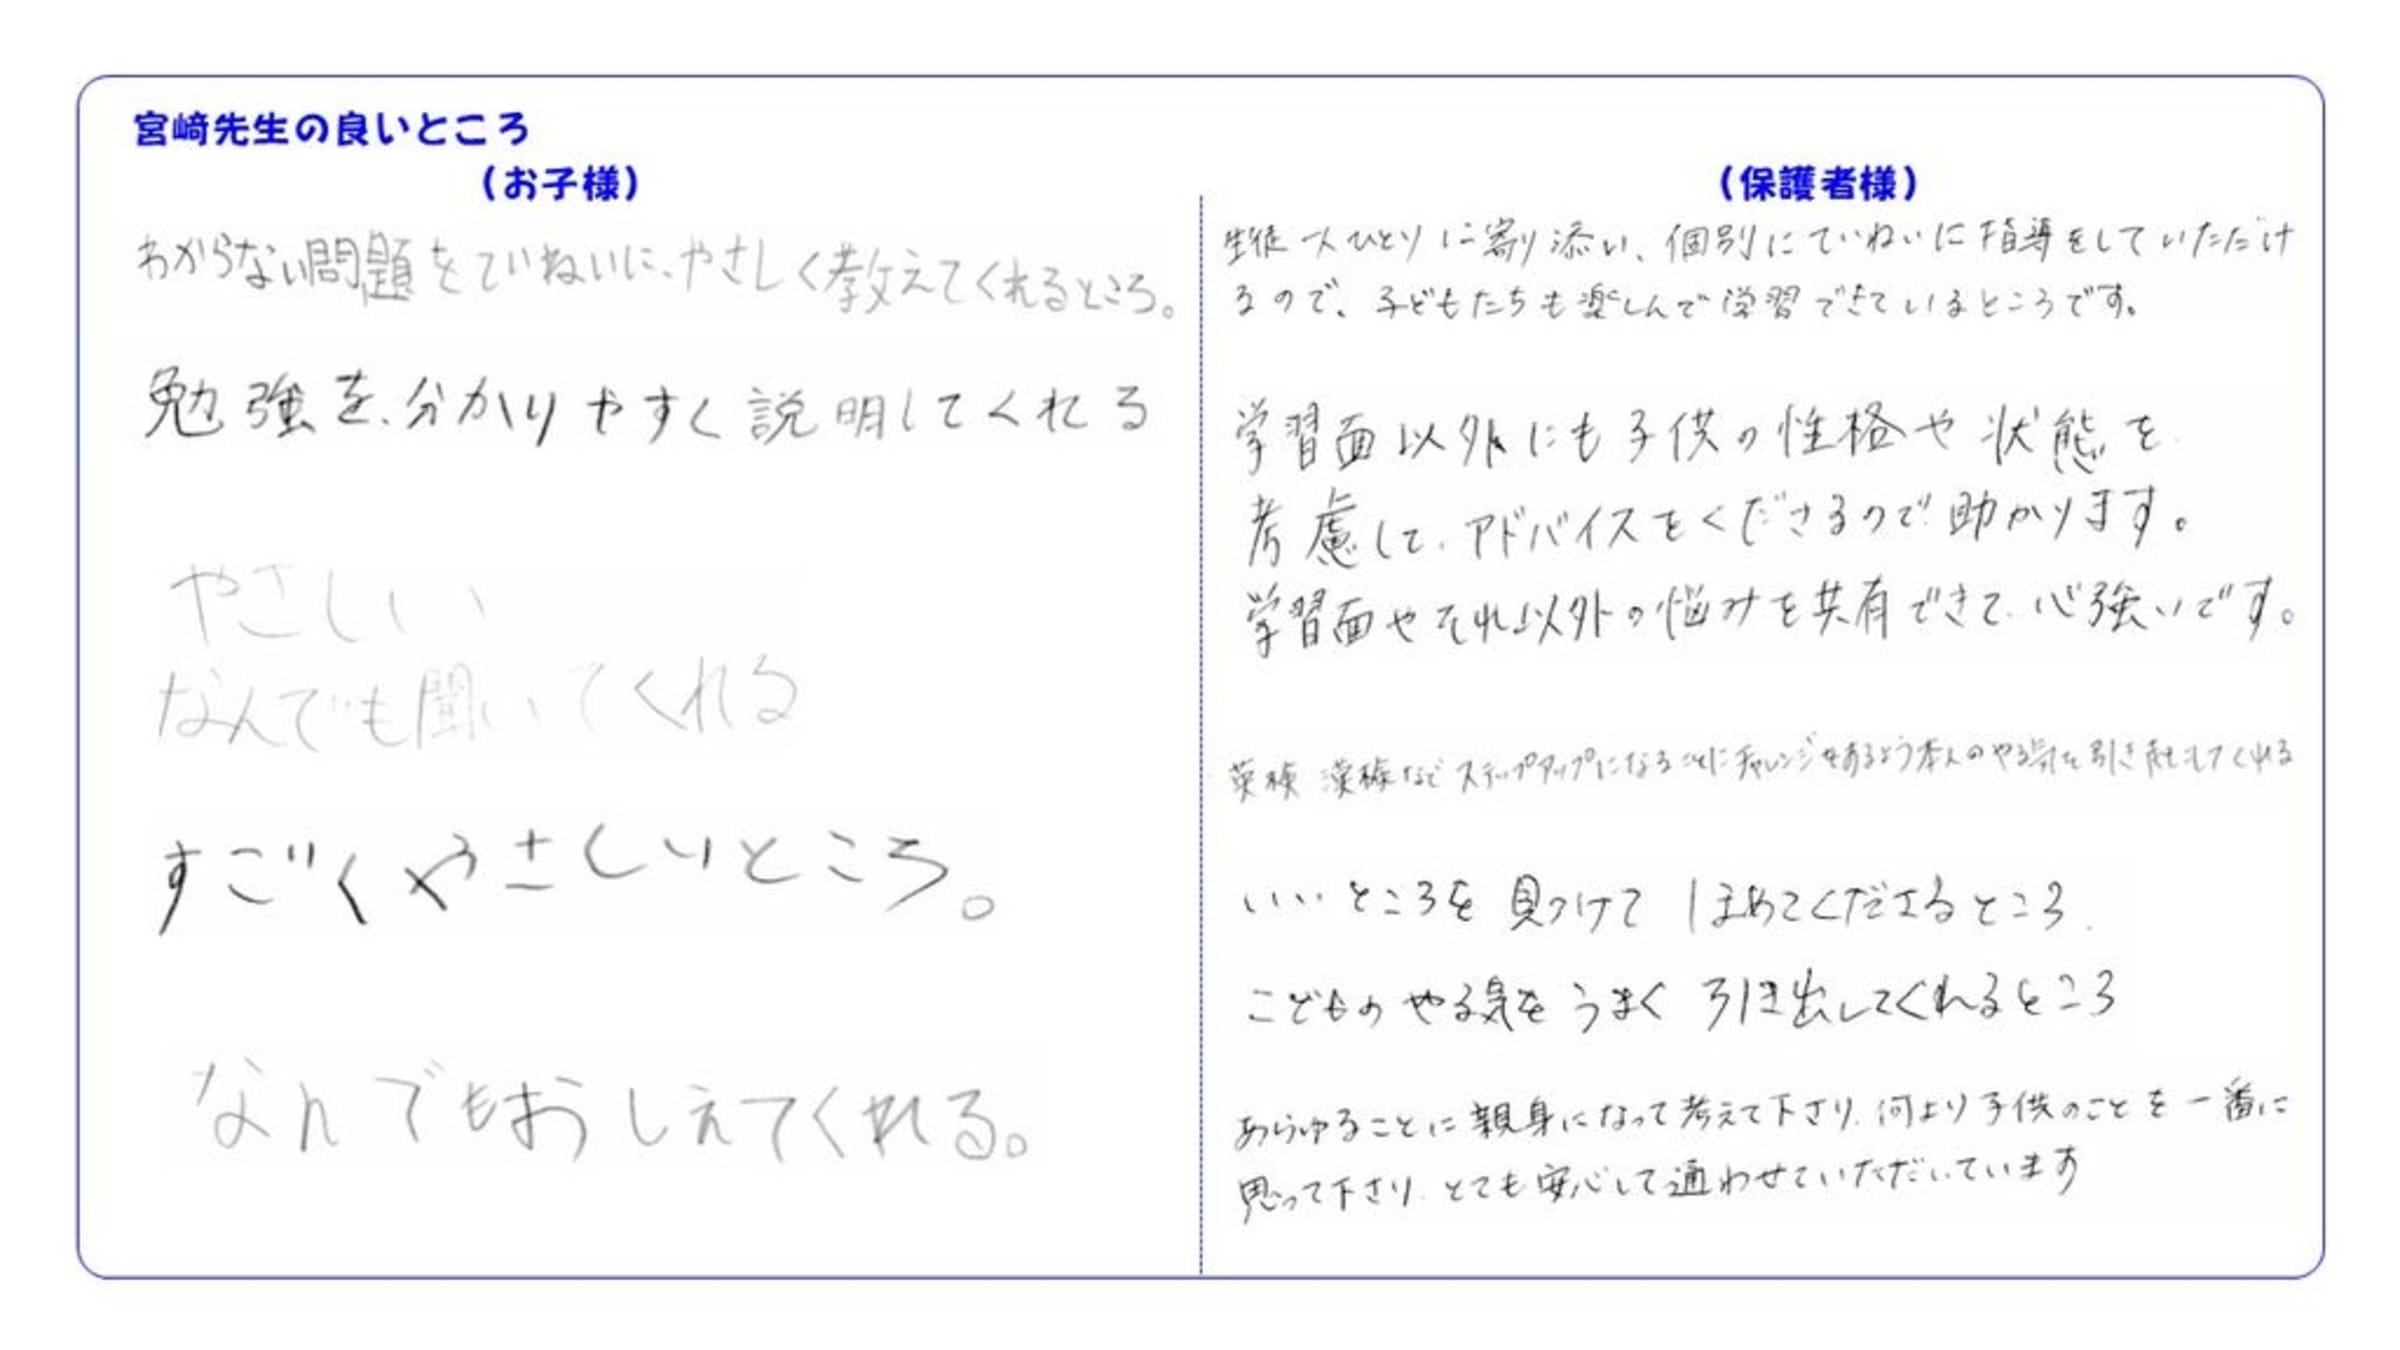 宮﨑先生の良いところ
（お子様）
わからない問題をていねいに、やさしく教えてくれるところ。
勉強を、分かりやすく説明してくれる
やさしい
なんでも聞いてくれる
すごくやさしいところ。
なんでもおしえてくれる。
（保護者様）
生徒一人ひとりに寄り添い、個別にていねいに指導をしていただけ
るので、子どもたちも楽しんで学習できているところです。
学習面以外にも子供の性格や状態を
考慮して、アドバイスをくださるので助かります。
学習面やそれ以外の悩みを共有できて、心強いです。
英検 漢検など ステップアップになるごとにチャレンジするよう本人のやる気を引き出してくれる
いいところを見つけて ほめてくださるところ.
こどものやる気をうまく引き出してくれるところ
あらゆることに親身になって考えて下さり、何より子供のことを一番に
思って下さり、とても安心して通わせていただいています